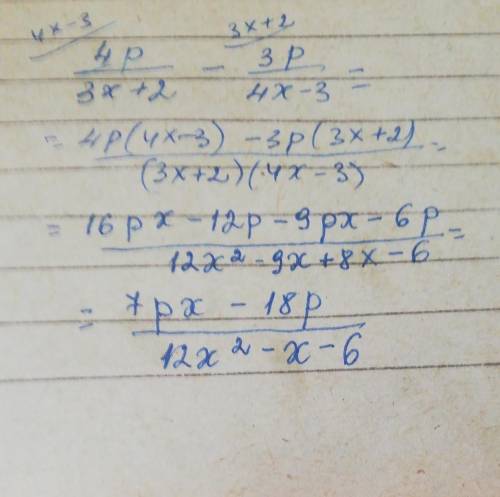 4x-3 3x+2
4p/3x+2 - 3p/4x-3 =
= 4p(4x-3) -3p(3x+2)/(3x+2)(4x-3) =
= 16px-12p-9px-6p/12x²-9x+8x-6 =
= 7px-18p/12x²-x-6